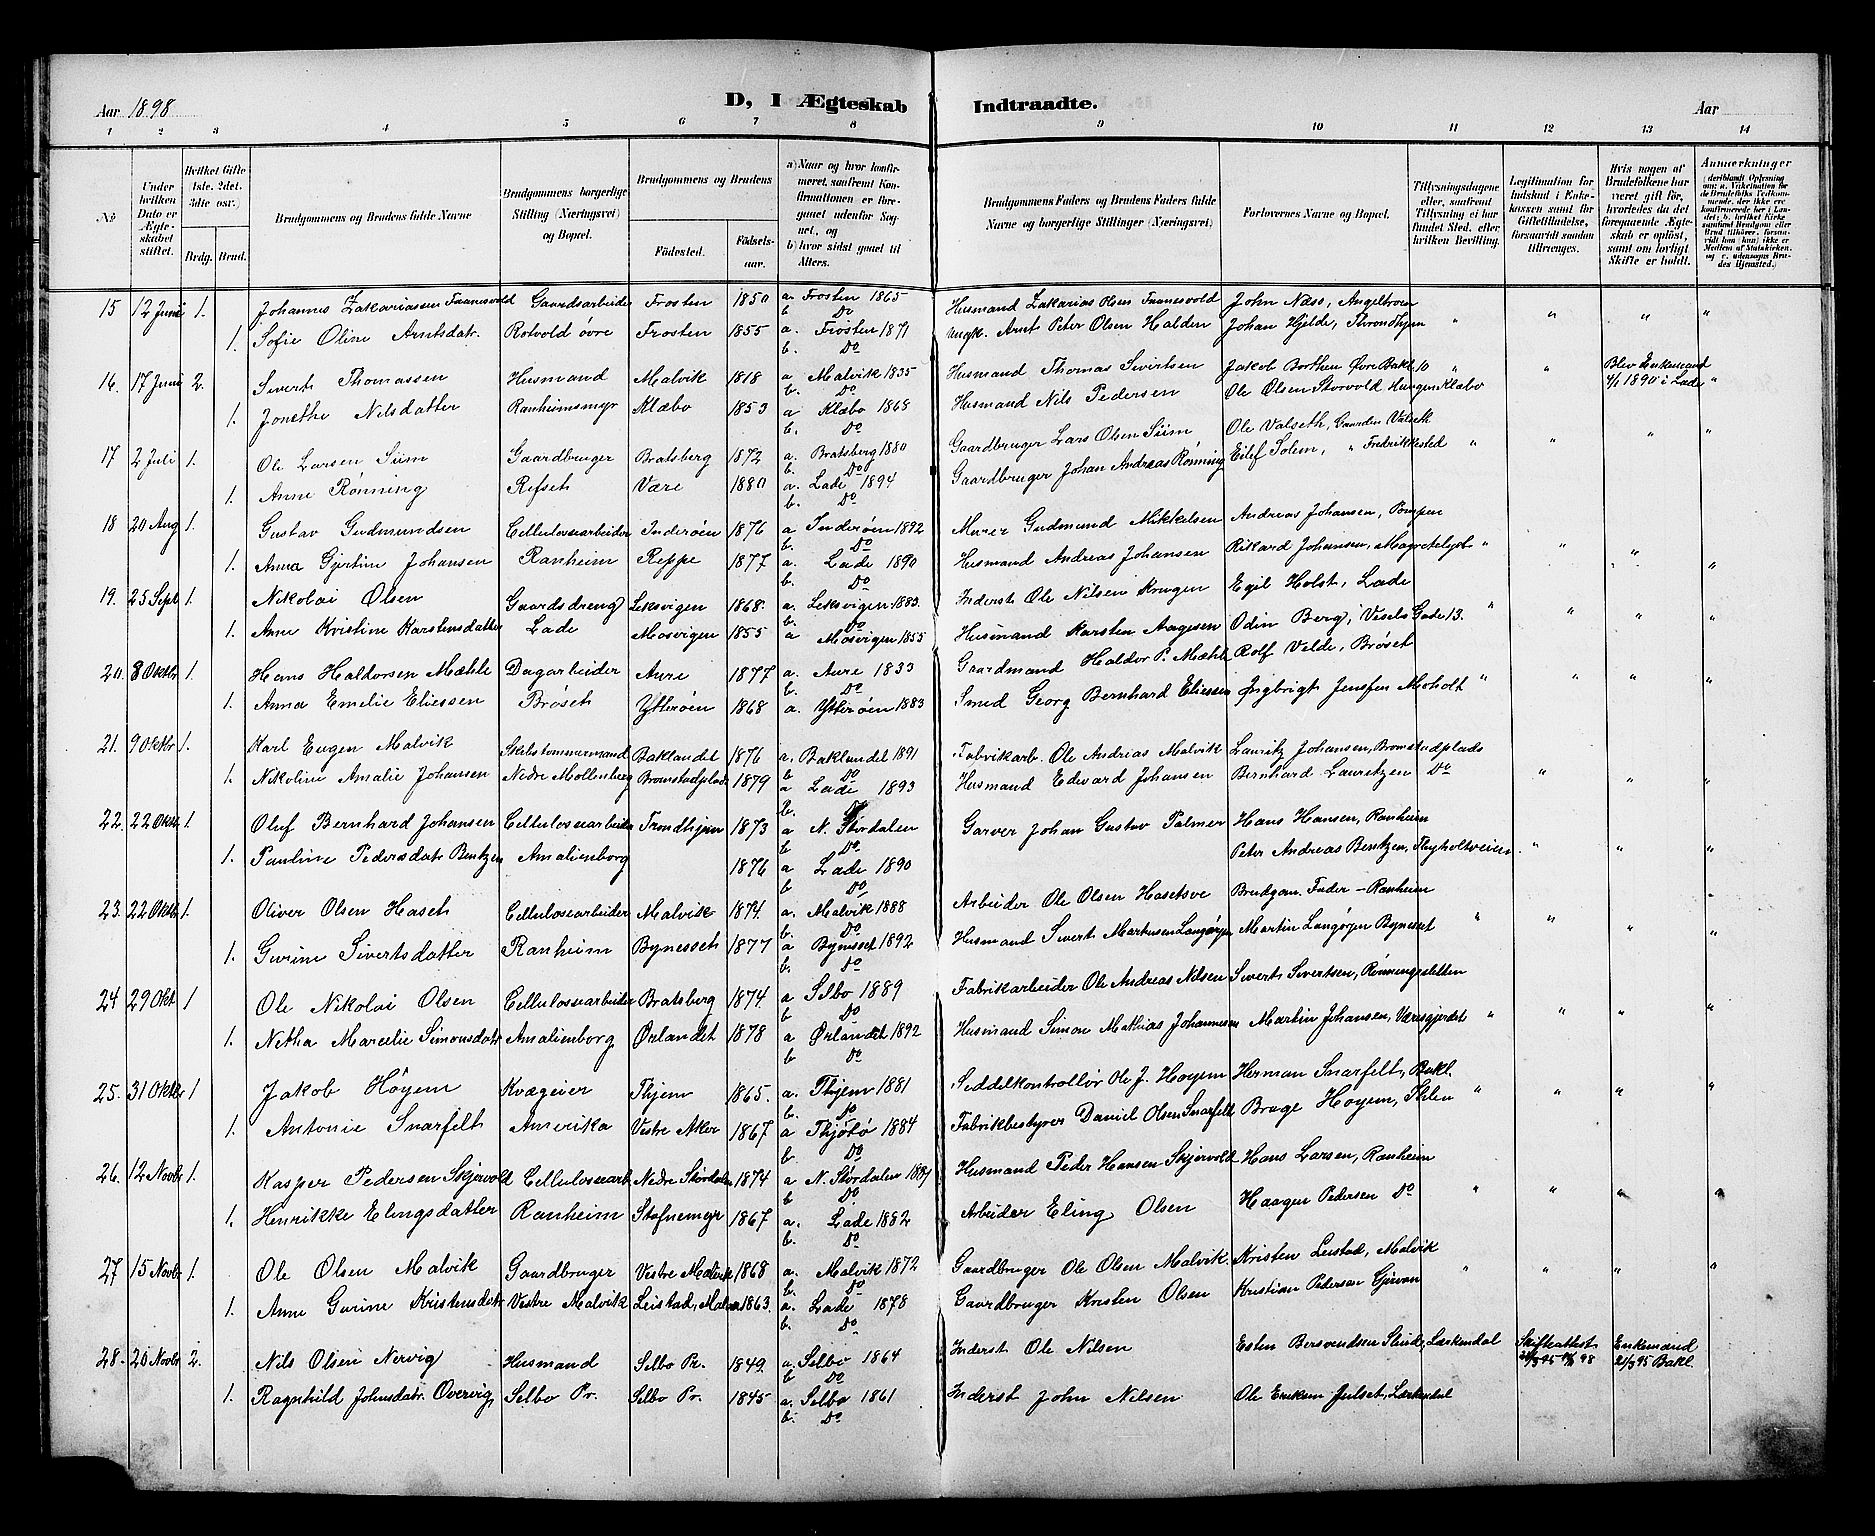 Aar 1898 D, I Ægteskab Indtraadte. Aar
1 2 3 4 5 6 7 8 9 10 11 12 13 14
№ Under hvilken Dato er Ægteskabet stiftet. Hvilket Gifte 1ste, 2det, 3die osv.) Brdg. Brud. Brudgommens og Brudens fulde Navne Brudgommens borgerlige Stilling (Næringsvei) og Bopæl. Brudgommens og Brudens Födested. Födselsaar. a) Naar og hvor konfirmeret, samfremt Konfirmationen er foregaaet udenfor Sognet, og b) hvor sidst gaaet til Alters. Brudgommens Faders og Brudens Faders fulde Navne og borgerlige Stillinger (Næringsvei) Forlovernes Navne og Bopæl. Tillysningsdagene eller, saafremt Tillysning ei har fundet Sted, efter hvilken Bevilling. Legitimation for Indskud i Enkekassen samt for Giftetilladelse, forsaavidt saadan tiltrænges. Hvis nogen af Brudefolkene har været gift før, hvorledes da det foregaaende Ægteskab er opløst, samt om lovligt Skifte er holdt. Anmærkninger
15 12 Juni 1. Johannes Zakariassen Faanesvold Gaardsarbeider Frosten 1850 a. Frosten 1865 b. Do Husmand Zakarias Olsen Faanesvold John Næss, Angeltroen
1. Sofie Oline Arntsdatr. Rotvold övre Frosten 1855 a. Frosten 1871 b. Do Ungk. Arnt Peter Olsen Halden Johan Hjelde, Throndhjem " " " "
16. 17 Juni 2. Sivert Thomassen Husmand Malvik 1818 a Malvik 1835 b. Do Husmand Thomas Sivertsen Jakob Borthen Øvre Bakl 10 " " Blev Enkemand
1. Jonethe Nilsdatter Ranheimsmyr Klæbo 1853 a Klæbo 1868 b. Do Husmand Nils Pedersen Ole Olsen Storvold Hungen Klæbo 1890 i Lade "
17 2 Juli 1. Ole Larsen Siim Gaardbruger Bratsberg 1872 a. Bratsberg 1880 b. Do Gaardbruger Lars Olsen Siim Ole Valseth, Gaarden Valseth
1. Anne Rønning Refset Være 1880 a. Lade 1894 b. Do Gaardbruger Johan Andreas Rønning Eilef Solem, " Fredrikksted " " " "
18 20 Aug 1. Gustav Gudmundsen Cellulosearbeider Inderøen 1876 a Inderøen 1892 b. Do Murer Gudmund Mikkelsen Andreas Johansen, Pompen
1. Anna Gjertine Johansen Ranheim Reppe 1877 a. Lade 1890 b. Do Husmand Andreas Johansen Rikard Johansen, Magretelyst " " " "
19. 25 Sept 1. Nikolai Olsen Gaardsdreng Leksvigen 1868. a. Leksvigen 1883. b. Do Inderst Ole Nilsen Krogen Egil Holst, Lade
1. Anne Kristine Karstensdatter Lade Mosvigen 1855 a Mosvigen 1855 Husmand Karsten Aagesen Odin Berg, Vesels Gade 13. " " " "
20. 8 Oktbr 1. Hans Haldorsen Mæhle Dagarbeider Aure 1877 a. Aure 1833 b. Do Gaardmand Haldor P. Mæhle Rolf Velde, Brøset
1. Anna Emelie Eliessen Brøset Ytterøen 1868 a. Ytterøen 1883 Smed Georg Bernhard Eliessen Ingbrigt Jensen Moholt " " " "
21. 9 Oktbr 1. Karl Eugen Malvik Skibstømmermand Baklandet 1876 a. Baklandet 1891 b Do Fabrikarb. Ole Andreas Malvik Lauritz Johansen, Bromstadplads
1. Nikoline Amalie Johansen Nedre Mollenberg Bromstadplads 1879 a Lade 1893 b. Do Husmand Edward Johansen Bernhard Lauritzen Do " " "
22. 22 Oktbr. 1. Oluf Bernhard Johansen Cellulosearbeider Trondhjem 1873 a N. Stördalen b Do Garver Johan Gustav Palmer Hans Hansen, Ranheim
1. Pauline Pedersdatr Bentzen Amalienborg 1876 a Lade 1890 b Do Peter Andreas Bentzen, Tyholtveien " " "
23. 22 Oktbr. 1. Oliver Olsen Haset Cellulosearbeider Malvik 1874. a. Malvik 1888 b. Do Arbeider Ole Olsen Hasetsve Brudgom. Fader - Ranheim
1. Gurine Sivertsdatter Ranheim Bynesset 1877 a Bynesset 1892 b. Do Husmand Sivert Martinsen Langørgen Martin Langørgen Bynesset " " " "
24 29 Okt. 1 Ole Nikolai Olsen Cellulosearbeider Bratsberg 1874. a Selbo 1889 b Do Fabrikarbeider Ole Andreas Nilsen Sivert Sivertsen, Rønningsletten
1. Netha Marcelie Simonsdatr Amalienborg Ørlandet 1878 a Ørlandet 1892 b. Do Husmand Simon Mathias Johannesen Martin Johansen, Væresgjerdet " " " "
25. 31 Oktbr 1 Jakob Höyem Kvægeier Thjem 1865. a. Thjem 1881 b. Do Seddelkontrollör Ole J. Hoyem Herman Snarfelt, Bakl.
1. Antonie Snarfelt Amerika Vestre Aker 1867 a Thjötö 1884 b. Do Fabrikbestyrer Daniel Olsen Snarfelt Brage Hoyem, Ihlen " " " "
26. 12 Novbr 1. Kasper Pedersen Skjervold Cellulosearb. Nedre Stördalen 1874 a N. Stördalen 1889 b Do Husmand Peder Hansen Skjervold Hans Larsen, Ranheim
1. Henrikke Elingsdatter Ranheim Stafnemyr 1867 a. Lade 1882 b. Do Arbeider Eling Olsen Haagen Pedersen Do " " " "
27 15 Novbr 1. Ole Olsen Malvik Gaardbruger Vestre Malvik 1868 a. Malvik 1872 b. Do Gaardbruger Ole Olsen Malvik. Kristen Leistad, Malvik
1. Anne Gurine Kristensdatr Vestre Malvik Leistad, Malv 1863. a. Lade 1878 b. Do Gaardbruger Kristen Olsen Kristian Pedersen Gjervan " " " "
28. 20 Novbr 2. Nils Olsen Nervig Husmand Selbo Pr. 1849. a. Selbo 1864 b Do Inderst Ole Nilsen Esten Bersvendsen Slind, Lærkendal Skifteattest Enkemand 21/3 95 Bakl.
1. Ragnhild Johnsdatr. Overvig Selbo Pr. Selbo Pr. 1845 a. Selbo 1861 b. Do Inderst John Nilsen Ole Eriksen Julset, Lærkendal